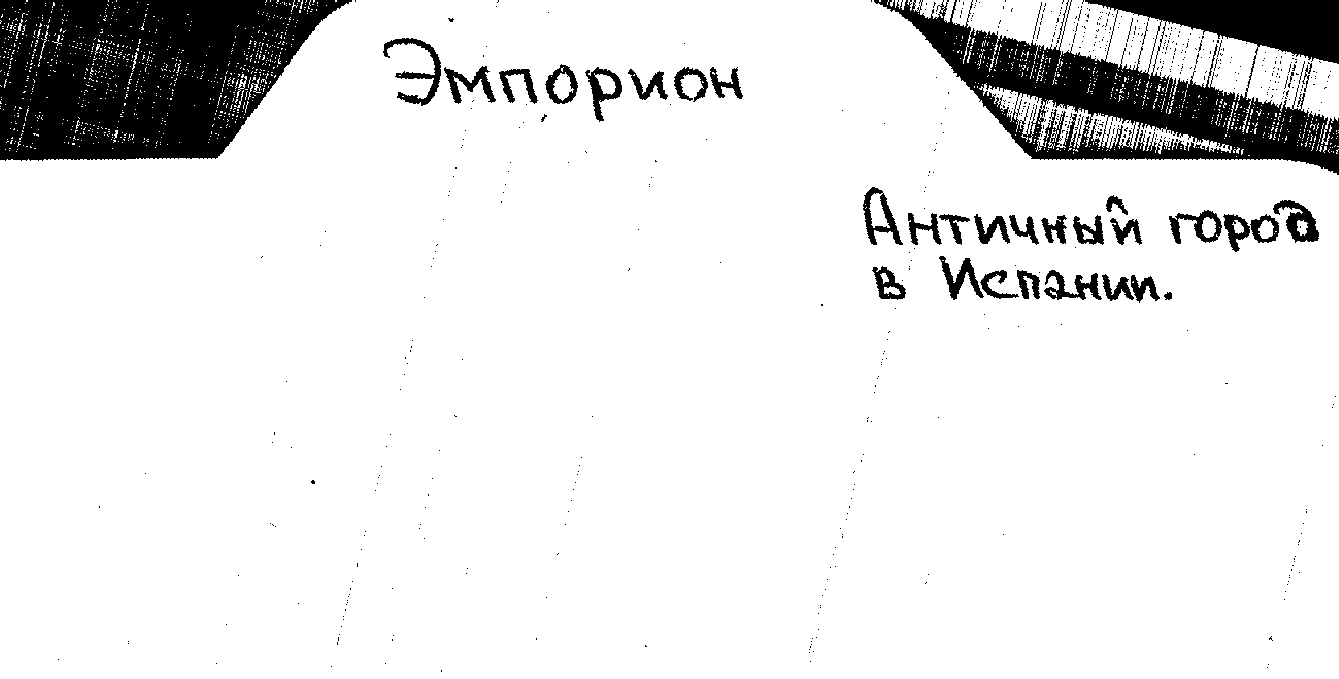 Эмпорион
Античный город
в Испании.